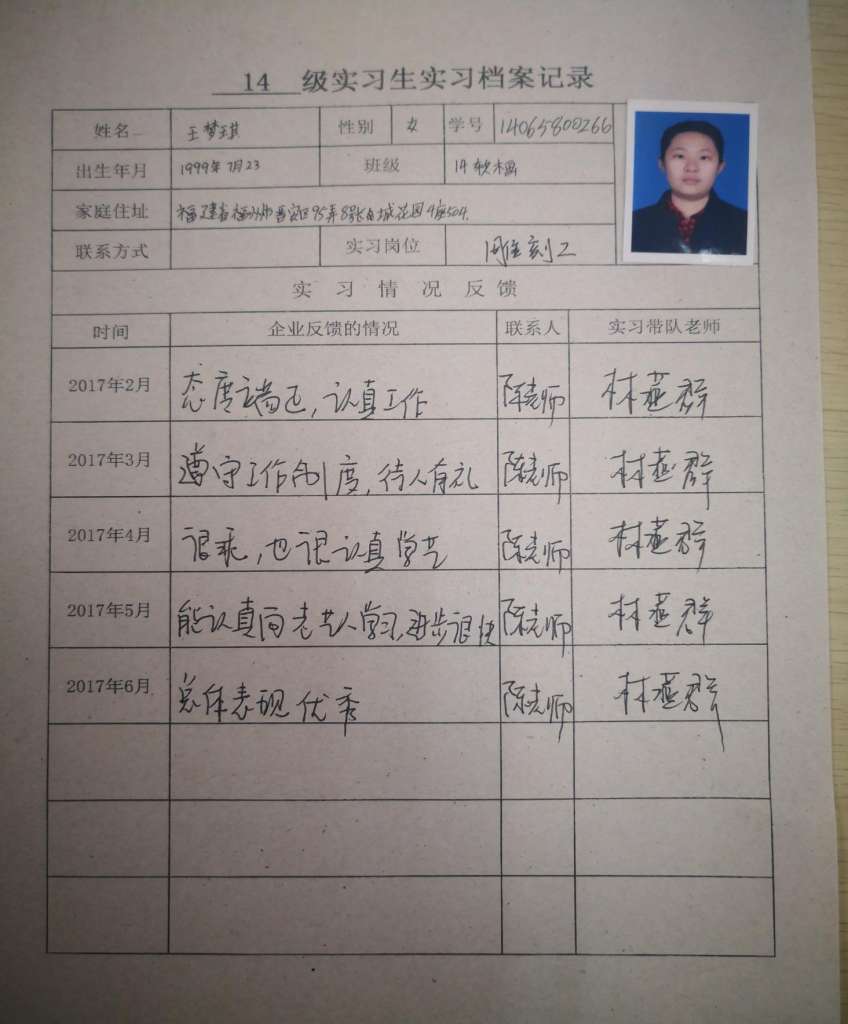 14 级实习生实习档案记录
姓名 王梦琪 性别 女 学号 14065800266
出生年月 1999年7月23 班级 14软木画
家庭住址 福建省福州市晋安区95弄8号 城花园
联系方式 实习岗位 雕刻工
实习情况反馈
时间 企业反馈的情况 联系人 实习带队老师
2017年2月 态度端正,认真工作 陈老师 林燕群
2017年3月 遵守工作制度,待人有礼 陈老师 林燕群
2017年4月 很乖,也很认真学艺 陈老师 林燕群
2017年5月 能认真向老艺人学习,进步很快 陈老师 林燕群
2017年6月 总体表现优秀 陈老师 林燕群